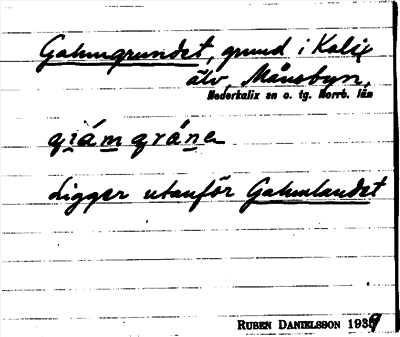 Gahmgrundet, grund i Kalix
älv, Månsbyn,
Nederkalix sn o. tg. Norrb. län
Ligger utanför Gahmlandet
RUBEN DANIELSSON 1939